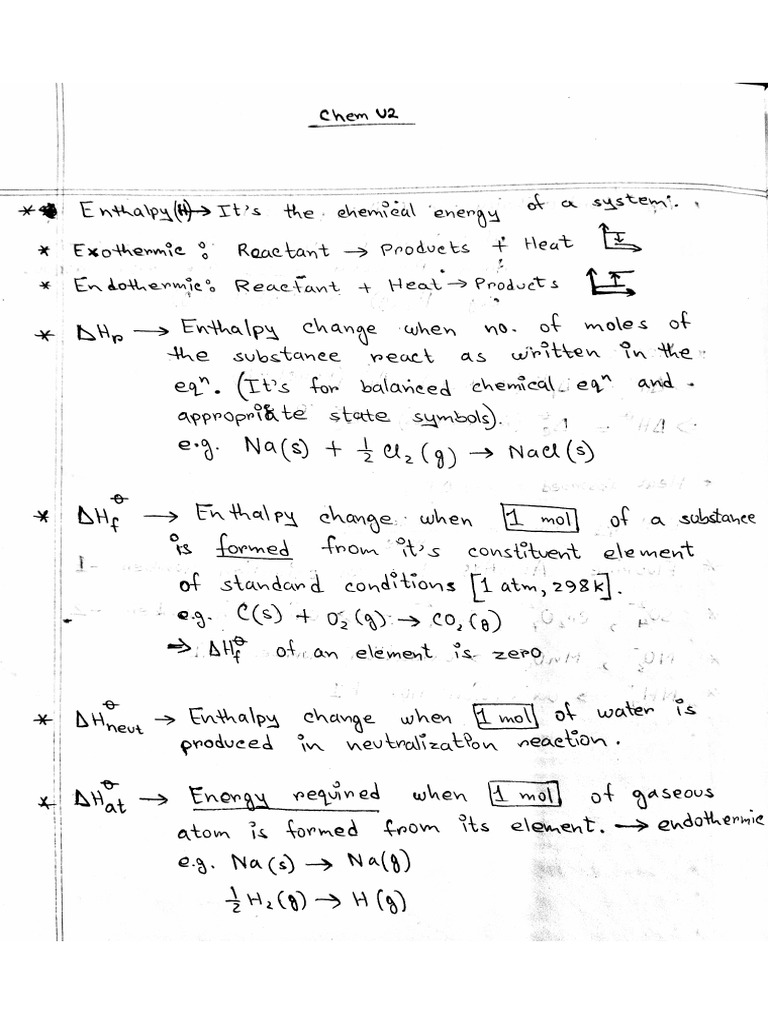 Chem U2
* Enthalpy (H) → It's the chemical energy of a system.
* Exothermic : Reactant → Products + Heat
* Endothermic : Reactant + Heat → Products
* ΔHr → Enthalpy change when no. of moles of
the substance react as written in the
eqⁿ. (It's for balanced chemical eqⁿ and
appropriate state symbols).
e.g. Na(s) + 1/2 Cl₂(g) → NaCl(s)
* ΔHf⦵ → Enthalpy change when 1 mol of a substance
is formed from it's constituent element
of standard conditions [1 atm, 298k].
e.g. C(s) + O₂(g) → CO₂(g)
⇒ ΔHf⦵ of an element is zero
* ΔHneut⦵ → Enthalpy change when 1 mol of water is
produced in neutralization reaction.
* ΔHat⦵ → Energy required when 1 mol of gaseous
atom is formed from its element. → endothermic
e.g. Na(s) → Na(g)
1/2 H₂(g) → H(g)